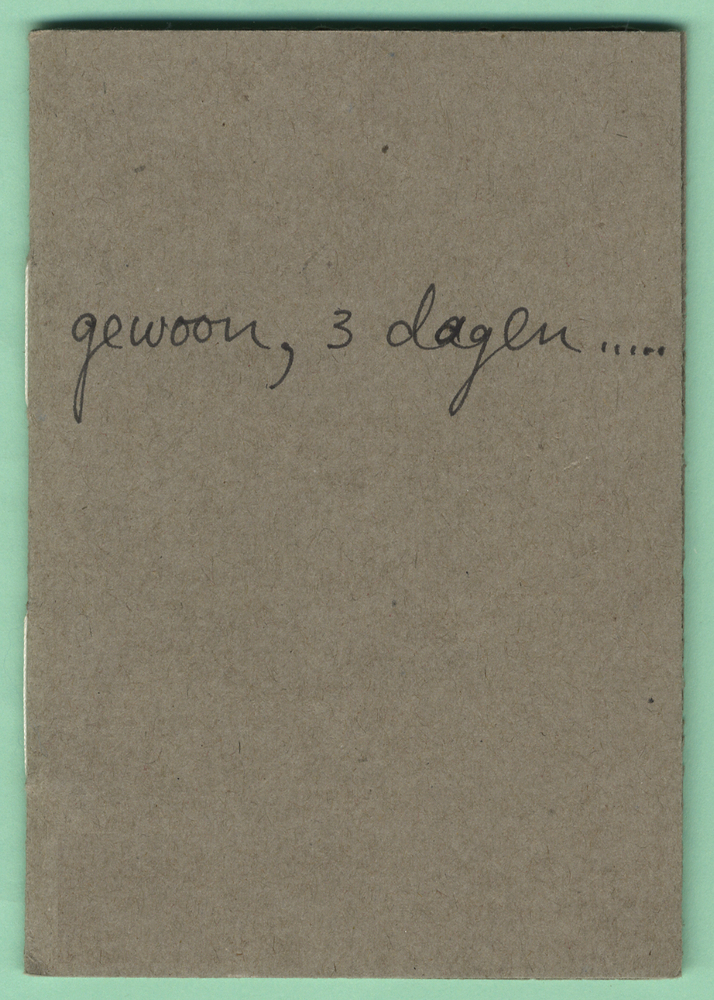 gewoon, 3 dagen.....